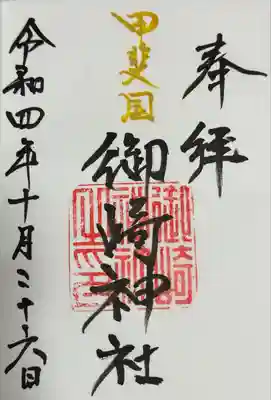 奉拝
甲斐国
御崎神社
令和四年十月二十六日